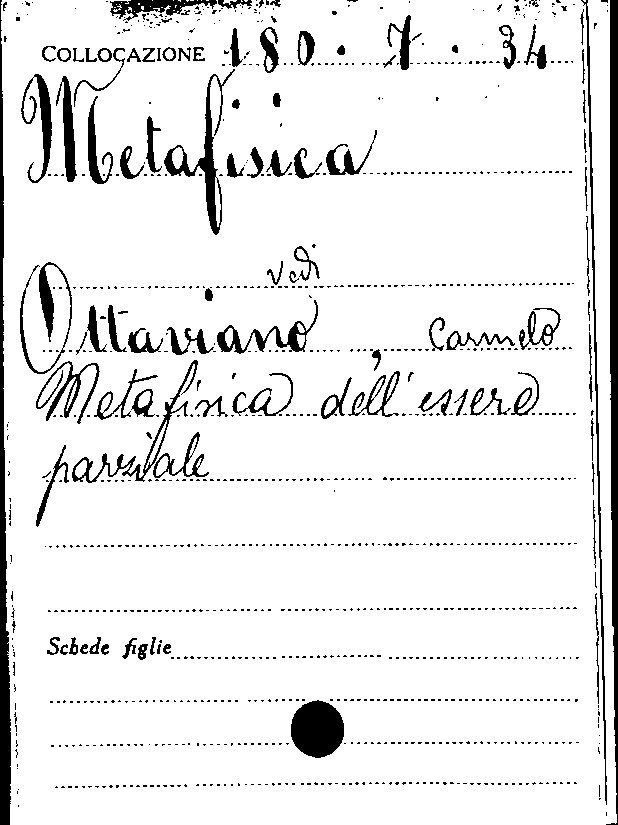 COLLOCAZIONE 180 · 7 · 34
Metafisica
vedi
Ottaviano, Carmelo
Metafisica dell'essere
parziale
Schede figlie